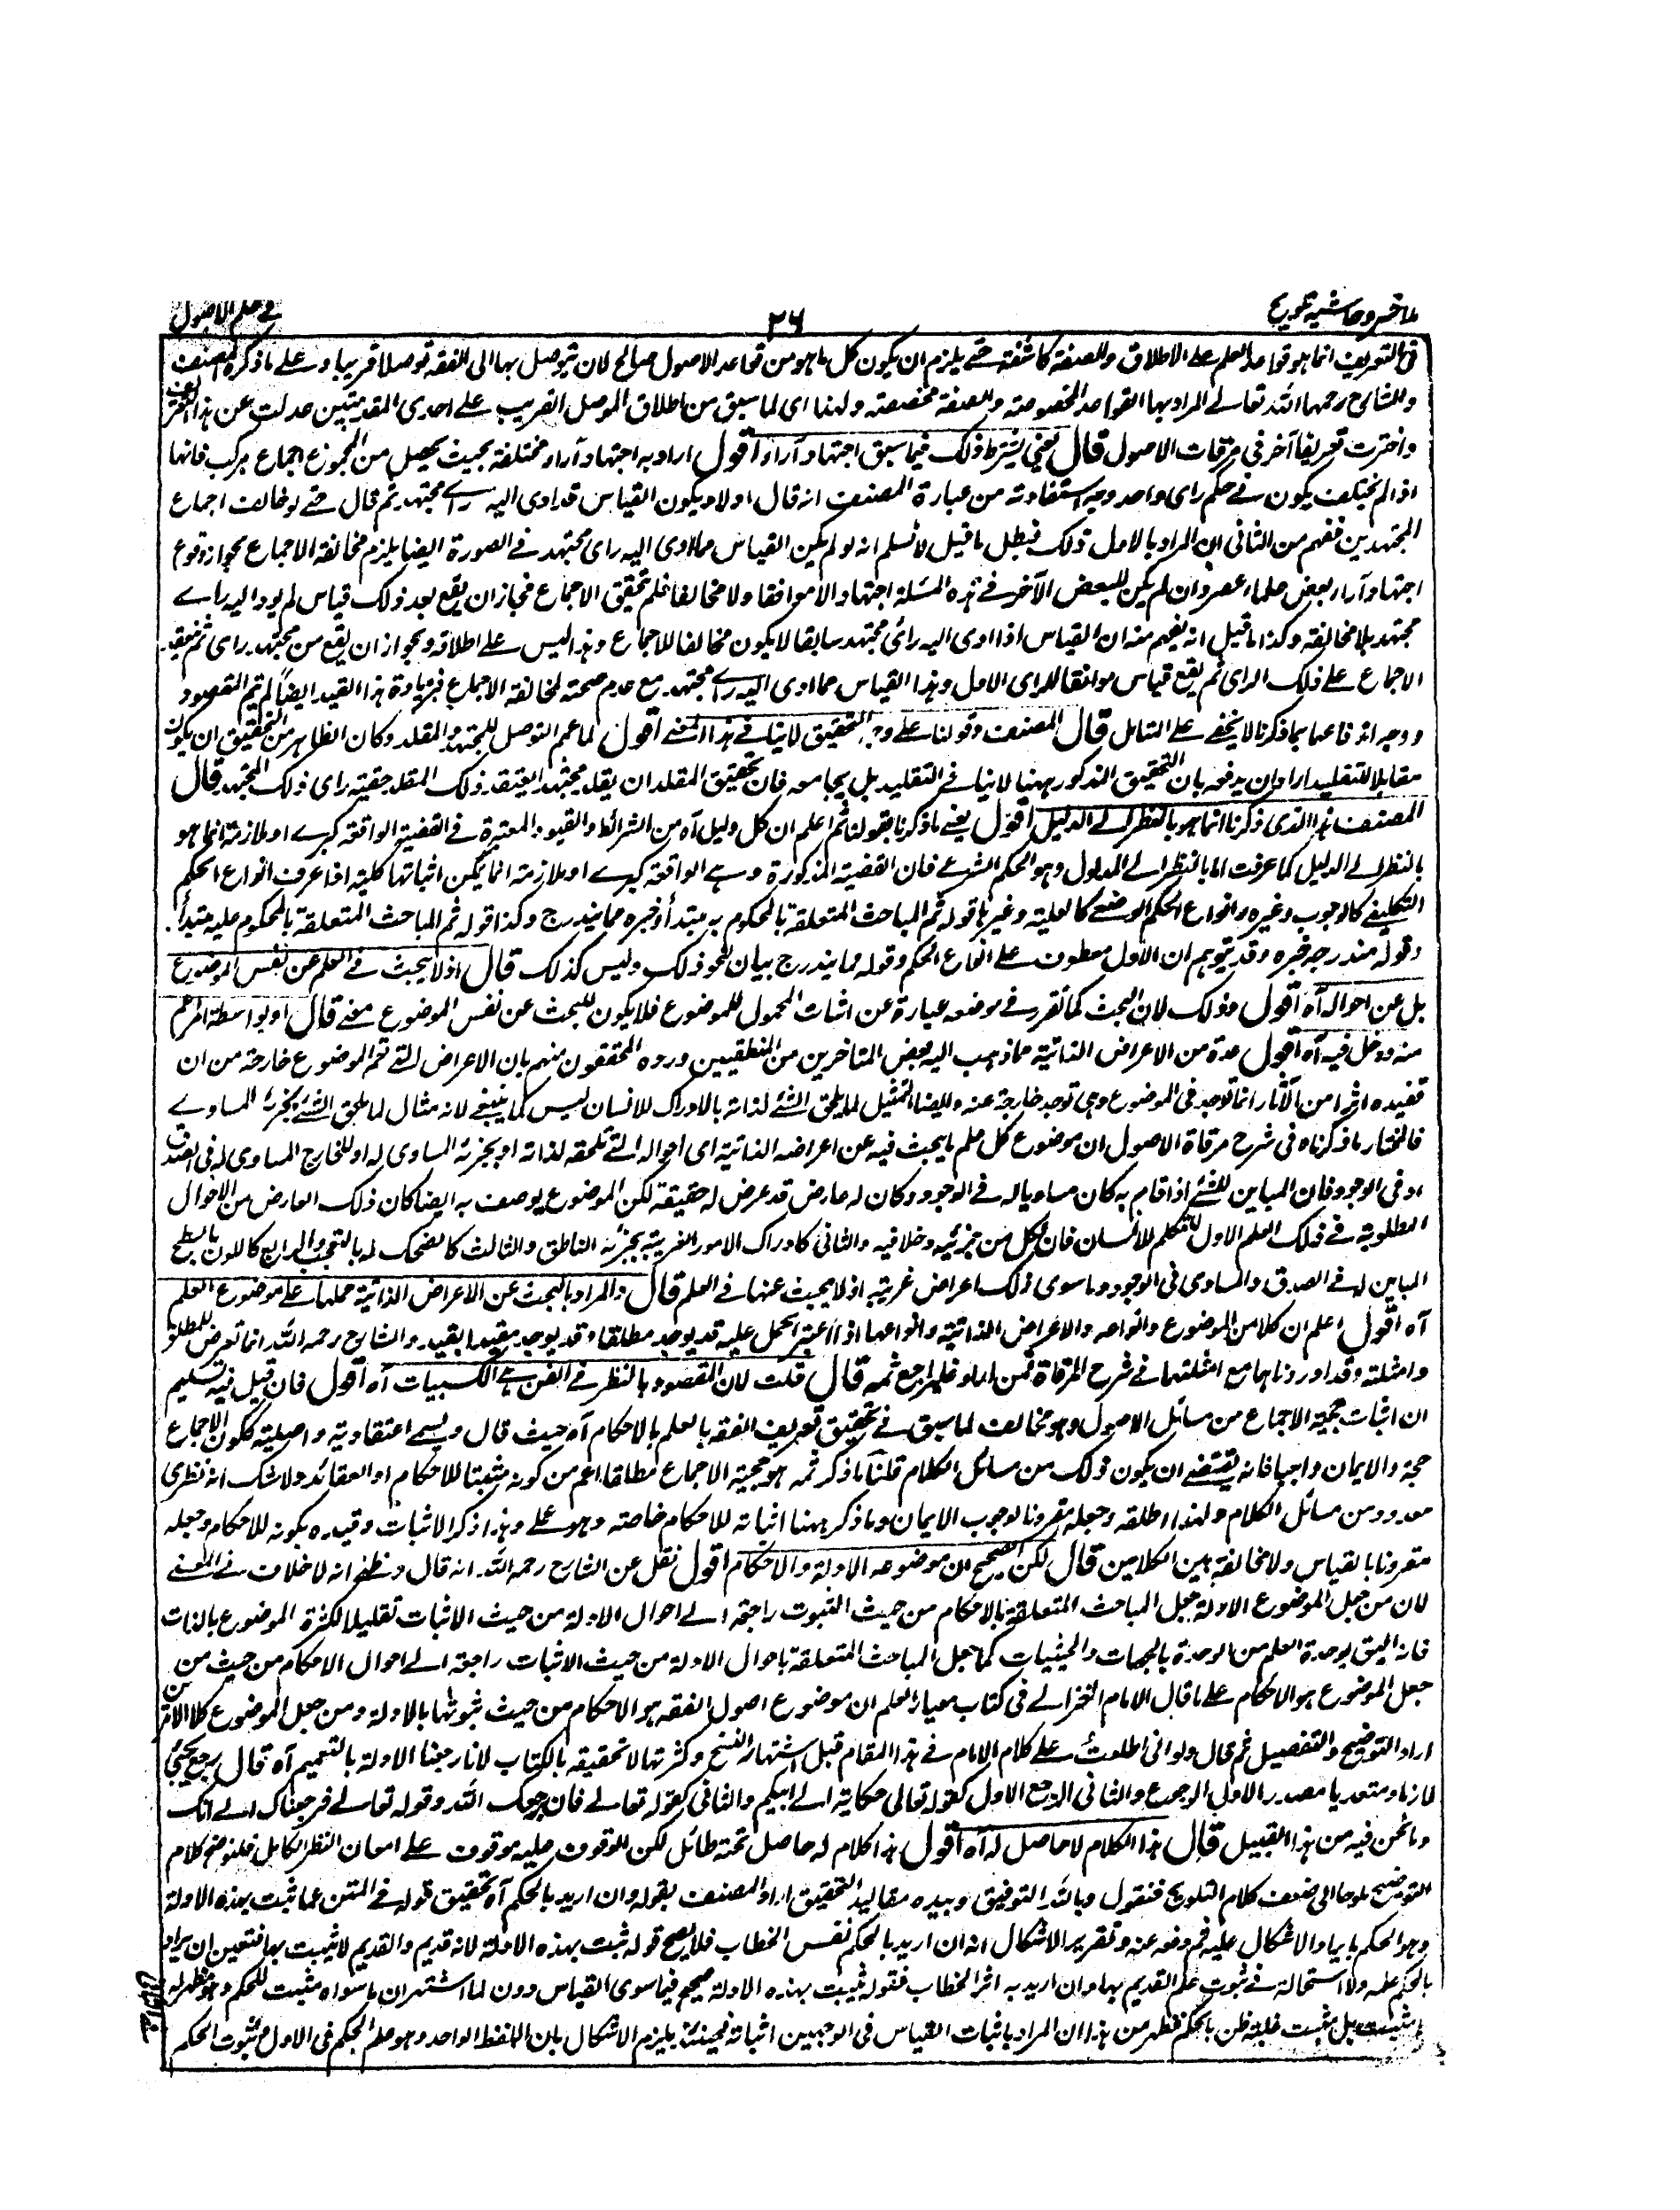 ملا خسرو حاشیه تلویح
۲۶
في علم الاصول
في التعريف انما هو قواعد العلم على الاطلاق والصفة كاشفة حتى يلزم ان يكون كل ما هو من قواعد الاصول صالحا لان يتوصل بها الى الفقه توصلا قريبا وعلى ما ذكره المصنف
والشارح رحمهما الله تعالى المراد بها القواعد المخصوصة والصفة مخصصة ولهذا اى لما سبق من اطلاق الموصل القريب على احدى المقدمتين عدلت عن هذا التعريف
واخترت تعريفا آخر في مرقات الاصول قال يعني يشترط ذلك فيما سبق اجتهاد آراء اقول اراد به اجتهاد آراء مختلفة بحيث يحصل من المجموع اجماع مركب فانها
اذا لم تختلف يكون في حكم راى واحد وجه استفادته من عبارة المصنف انه قال اولا ويكون القياس قد ادى اليه راے مجتهد ثم قال حتى لو خالف اجماع
المجتهدين ففهم من الثاني ان المراد بالاول ذلك فبطل ما قيل لا نسلم انه لو لم يكن القياس مما ادى اليه راى مجتهد في الصورة ايضا يلزم مخالفة الاجماع بجواز وقوع
اجتهاد آراء بعض علماء عصر وان لم يكن للبعض الآخر في هذه المسئلة اجتهاد لا موافقا ولا مخالفا فلم تحقق الاجماع فجاز ان يقع بعد ذلك قياس لم يود اليه راے
مجتهد بلا مخالفة وكذا ما قيل انه يفهم منه ان القياس اذا ادى اليه رائ مجتهد سابقا لا يكون مخالفا للاجماع وهذا ليس على اطلاقه وبجواز ان يقع من مجتهد راى ثم ينعقد
الاجماع على ذلك الراى ثم يقع قياس موافقا للراى الاول وهذا القياس مما ادى اليه راے مجتهد مع عدم صحته لمخالفة الاجماع فبزيادة هذا القيد ايضا لم يتم المقصود
ووجه اندفاعهما بما ذكرنا لا يخفى على المتامل قال المصنف وقولنا على وجه التحقيق لا ينافى هذا المعنى اقول لما عمم التوصل للمجتهد والمقلد وكان الظاهر من التحقيق ان يكون
مقابلا للتقليد اراد ان يدفعه بان التحقيق المذكور ههنا لا ينافى التقليد بل يجامعه فان تحقيق المقلد ان يقلد مجتهدا يعتقد ذلك المقلد حقية راى ذلك المجتهد قال
المصنف هذا الذى ذكرنا انما هو بالنظر الى الدليل اقول يعني ما ذكرنا بقولنا ثم اعلم ان كل دليل آه من الشرائط والقيود المعتبرة في القضية الواقعة كبرى او ملازمة انما هو
بالنظر الى الدليل كما عرفت اما بالنظر الى المدلول وهو الحكم الشرعى فان القضية المذكورة وهى الواقعة كبرى او ملازمة انما يمكن اثباتها كلية اذا عرف انواع الحكم
التكليفى كالوجوب وغيره وانواع الحكم الوضعى كالعلية وغيرها قوله ثم المباحث المتعلقة بالمحكوم به مبتدأ وخبره مما يندرج وكذا قوله ثم المباحث المتعلقة بالمحكوم عليه مبتدأ
وقوله مندرجه خبره وقد يتوهم ان الاول معطوف على انواع الحكم وقوله مما يندرج بيان لنحو ذلك وليس كذلك قال اذ لا يبحث فى العلم عن نفس الموضوع
بل عن احواله آه اقول وذلك لان البحث كما تقرر في موضعه عبارة عن اثبات المحمول للموضوع فلا يكون للبحث عن نفس الموضوع معنى قال او بواسطة امر اعم
منه ودخل فيه آه اقول عدة من الاعراض الذاتية مما ذهب اليه بعض المتاخرين من المنطقيين ورده المحققون منهم بان الاعراض التى تعم الموضوع خارجة من ان
تفيده اثرا من الآثار انما توجد فى الموضوع وهى توجد خارجة عنه وايضا التمثيل لما يلحق الشئ لذاته بالادراك للانسان ليس كما ينبغى لانه مثال لما يلحق الشئ بجزئه المساوى
فالمختار ما ذكرناه فى شرح مرقاة الاصول ان موضوع كل علم ما يبحث فيه عن اعراضه الذاتية اى احواله التى تلحقه لذاته او بجزئه المساوى له او للخارج المساوى له فى الصدق
او فى الوجود فان المباين للشئ اذا قام به كان مساويا له فى الوجود وكان له عارض قد عرض له حقيقة لكن الموضوع يوصف به ايضا كان ذلك العارض من الاحوال
المطلوبة فى ذلك العلم الاول كالتكلم للانسان فان لكل من جزئيه دخلا فيه والثانى كادراك الامور الغريبة بجزئه الناطق والثالث كالضحك له بالتعجب والرابع كاللون بالسطح
المباين له فى الصدق والمساوى فى الوجود وما سوى ذلك اعراض غريبة اذ لا يبحث عنها فى العلم قال والمراد بالبحث عن الاعراض الذاتية حملها على موضوع العلم
آه اقول اعلم ان كلا من الموضوع وانواعه والاعراض الذاتية وانواعها اذا اعتبر الحمل عليه قد يوجد مطلقا وقد يوجد مقيدا بقيد والشارح رحمه الله انما تعرض للمطلق
وامثلته وقد اوردناها مع امثلتها فى شرح المرقاة فمن اراد فليراجع ثمه قال قلت لان المقصود بالنظر فى الفن هى الكسبيات آه اقول فان قيل فيه تسليم
ان اثبات حجية الاجماع من مسائل الاصول وهو مخالف لما سبق فى تحقيق تعريف الفقه بالعلم بالاحكام آه حيث قال ويسمى اعتقادية واصلية ككون الاجماع
حجة والايمان واجبا فانه يقتضى ان يكون ذلك من مسائل الكلام قلنا ما ذكر ثمه هو حجية الاجماع مطلقا اعم من كونه مثبتا للاحكام او العقائد ولا شك انه نظرى
معدود من مسائل الكلام ولهذا اطلقه وجعله مقرونا لوجوب الايمان وما ذكر ههنا اثباته للاحكام خاصة وهو على وهذا ذكر الاثبات وقيده بكونه للاحكام وجعله
مقرونا بالقياس ولا مخالفة بين الكلامين قال لكن الصحيح ان موضوعه الادلة والاحكام اقول نقل عن الشارح رحمه الله انه قال ونظنى انه لا خلاف فى المعنى
لان من جعل الموضوع الادلة جعل المباحث المتعلقة بالاحكام من حيث الثبوت راجعة الى احوال الادلة من حيث الاثبات تقليلا لكثرة الموضوع بالذات
فانه اليق بوحدة العلم من الوحدة بالجهات والحيثيات كما جعل المباحث المتعلقة باحوال الادلة من حيث الاثبات راجعة الى احوال الاحكام من حيث من
جعل الموضوع هو الاحكام على ما قال الامام الغزالى فى كتاب معيار العلم ان موضوع اصول الفقه هو الاحكام من حيث ثبوتها بالادلة ومن جعل الموضوع كلا الامرين
اراد التوضيح والتفصيل ثم قال ولو انى اطلعت على كلام الامام فى هذا المقام قبل اشتهار النسخ وكثرتها لا تحقيقه بالكتاب لانا رجعنا الادلة بالتعميم آه قال رجع يجئ
لازما ومتعديا مصدر الاول الرجوع والثانى الرجع الاول كقوله تعالى حكاية الى ابيكم والثانى كقوله تعالى فان رجعك الله وقوله تعالى فرجعناك الى امك
وما نحن فيه من هذا القبيل قال هذا الكلام لا حاصل له آه اقول هذا كلام له حاصل تحته طائل لكن الوقوف عليه موقوف على امعان النظر الكامل فلنوضح كلام
التوضيح ملوحا الى ضعف كلام التلويح فنقول وبالله التوفيق وبيده مقاليد التحقيق اراد المصنف بقوله وان اريد بالحكم آه تحقيق قوله فى المتن عما ثبت بهذه الادلة
وهو الحكم بايراد الاشكال عليه ثم دفعه عنه وتقرير الاشكال انه ان اريد بالحكم نفس الخطاب فلا يصح قوله ثبت بهذه الادلة لانه قديم والقديم لا يثبت بها فتعين ان يراد
بالحكم علمه ولا استحالة فى ثبوت علم القديم بها وان اريد به اثر الخطاب فقوله يثبت بهذه الادلة صحيح فيما سوى القياس دون لما اشتهر ان ما سواه مثبت للحكم وهو مظهر له
لا مثبت بل يثبت غلبة ظن بالحكم فظهر من هذا ان المراد باثبات القياس فى الوجهين اثباته فحينئذ يلزم الاشكال بان اللفظ الواحد وهو علم الحكم فى الاول وثبوت الحكم